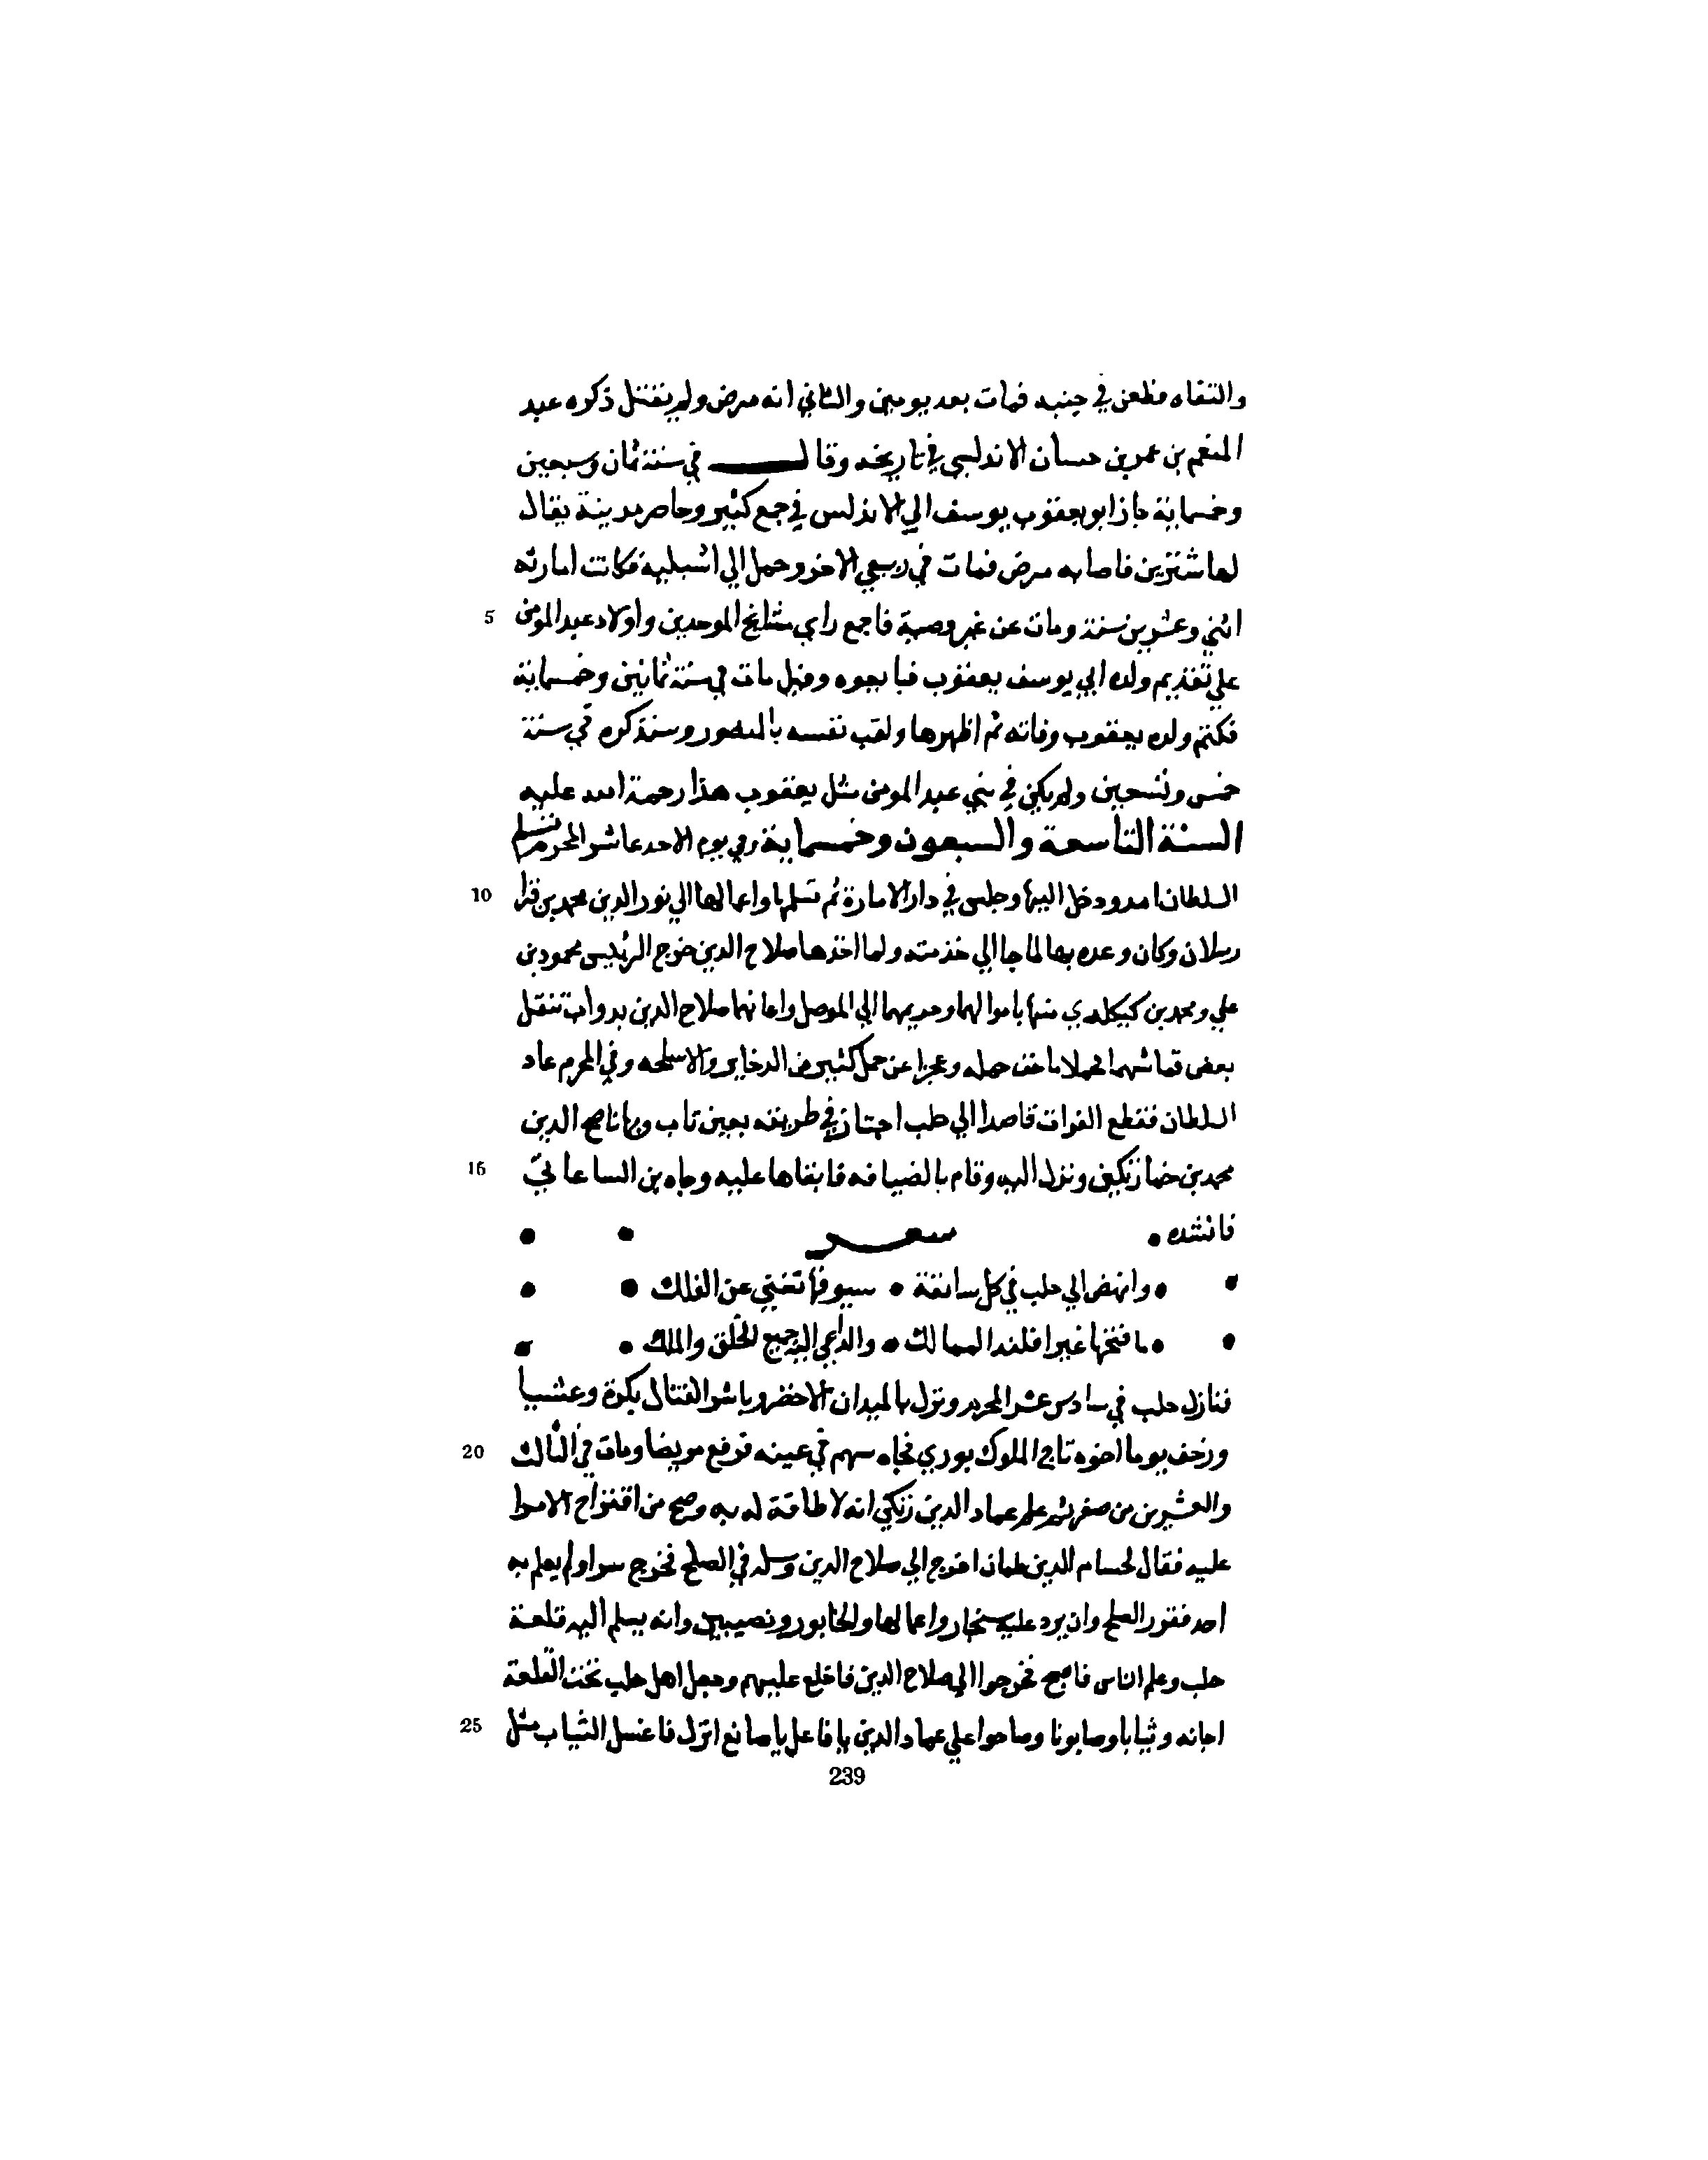 والتقاه فطعن في جنبه فمات بعد يومين والثاني انه مرض ولم يقتل ذكره عبد
المنعم بن عمر بن حسان الاندلسي في تاريخه وقال في سنة ثمان وسبعين
وخمسماية جاز ابو يعقوب يوسف الي الاندلس في جمع كثير وحاصر مدينة يقال
لها شنترين فاصابه مرض فمات في ربيع الاخر وحمل الي اشبيلية فكانت امارته
5 اثني وعشرين سنة ومات عن غير وصية فاجمع راي مشايخ الموحدين واولاد عبد المومن
علي تقديم ولده ابي يوسف يعقوب فبايعوه وقيل مات في سنة ثمانين وخمسماية
فكتم ولده يعقوب وفاته ثم اظهرها ولقب نفسه بالمنصور وسنذكره في سنة
خمس وتسعين ولم يكن في بني عبد المومن مثل يعقوب هذا رحمة الله عليه
السنة التاسعة والسبعون وخمسماية وفي يوم الاحد عاشر المحرم تسلم
10 السلطان امد ودخل اليها وجلس في دار الامارة ثم سلمها واعمالها الي نور الدين محمد بن قرا
رسلان وكان وعده بها لما جا الي خدمته ولما اخذها صلاح الدين خرج الرئيس محمود بن
علي ومحمد بن كيكلدي منها باموالهما وحريمهما الي الموصل واعانهما صلاح الدين بدواب تنقل
بعض قماشهما فحملا ما خف حمله وعجزا عن حمل كثير من الدخاير والاسلحه وفي المحرم عاد
السلطان فقطع الفرات قاصدا الي حلب اجتاز في طريقه بعين تاب وبها ناصح الدين
15 محمد بن خمارتكين ونزل اليه وقام بالضيافه فابقاها عليه وجاه بن الساعاتي
فانشده شعر
وانهض الي حلب في كل سابقة سيوفها تغني عن الفلك
ما فتحها غير اقليد الممالك والداعي اليه جميع الخلق والملك
فنازل حلب في سادس عشر المحرم ونزل بالميدان الاخضر وباشر القتال بكرة وعشيا
20 وزحف يوما اخوه تاج الملوك بوري فجاه سهم في عينه فوقع مريضا ومات في الثالث
والعشرين من صفر ثم علم عماد الدين زنكي انه لا طاقة له به وضج من اقتراح الامرا
عليه فقال لحسام الدين طمان اخرج الي صلاح الدين وسله في الصلح فخرج سرا ولم يعلم به
احد فقرر الصلح وان يرد عليه سنجار واعمالها والخابور ونصيبين وانه يسلم اليه قلعة
حلب وعلم الناس فاصبح فخرجوا الي صلاح الدين فاخلع عليهم وجعل اهل حلب تحت القلعة
25 اجانه وثيابا وصابونا وصاحوا علي عماد الدين يا فاعل يا صانع انزل فاغسل الثياب مثل
239